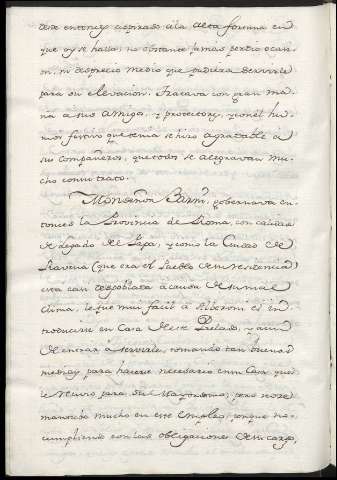 desde entonces aspirado á la alta fortuna en
que oy se halla; no obstante jamas perdio ocasi
on, ni desprecio medio que pudiera servirle
para su elevacion. Tratava con gran ma
ña á sus amigos, y protectores, y con el hu
mor festivo que tenia se hizo agradable á
sus compañeros, que todos se alegravan mu
cho con su trato.
Monseñor Barni, governava en
tonces la Provincia de Roma, con calidad
de Legado del Papa, y como la Ciudad de
Ravena (que era el Pueblo de su residencia)
era casi despoblada á causa de su mal
clima, le fue mui facil á Alberoni el in
troducirse en Casa de este Prelado, y aun
de entrar á servirle, tomando tan buenas
medidas para hacerse necesario en su Casa que
le recivio para su Mayordomo; pero no se
mantubo mucho en este empleo, porque no
cumpliendo con las obligaciones de su cargo,